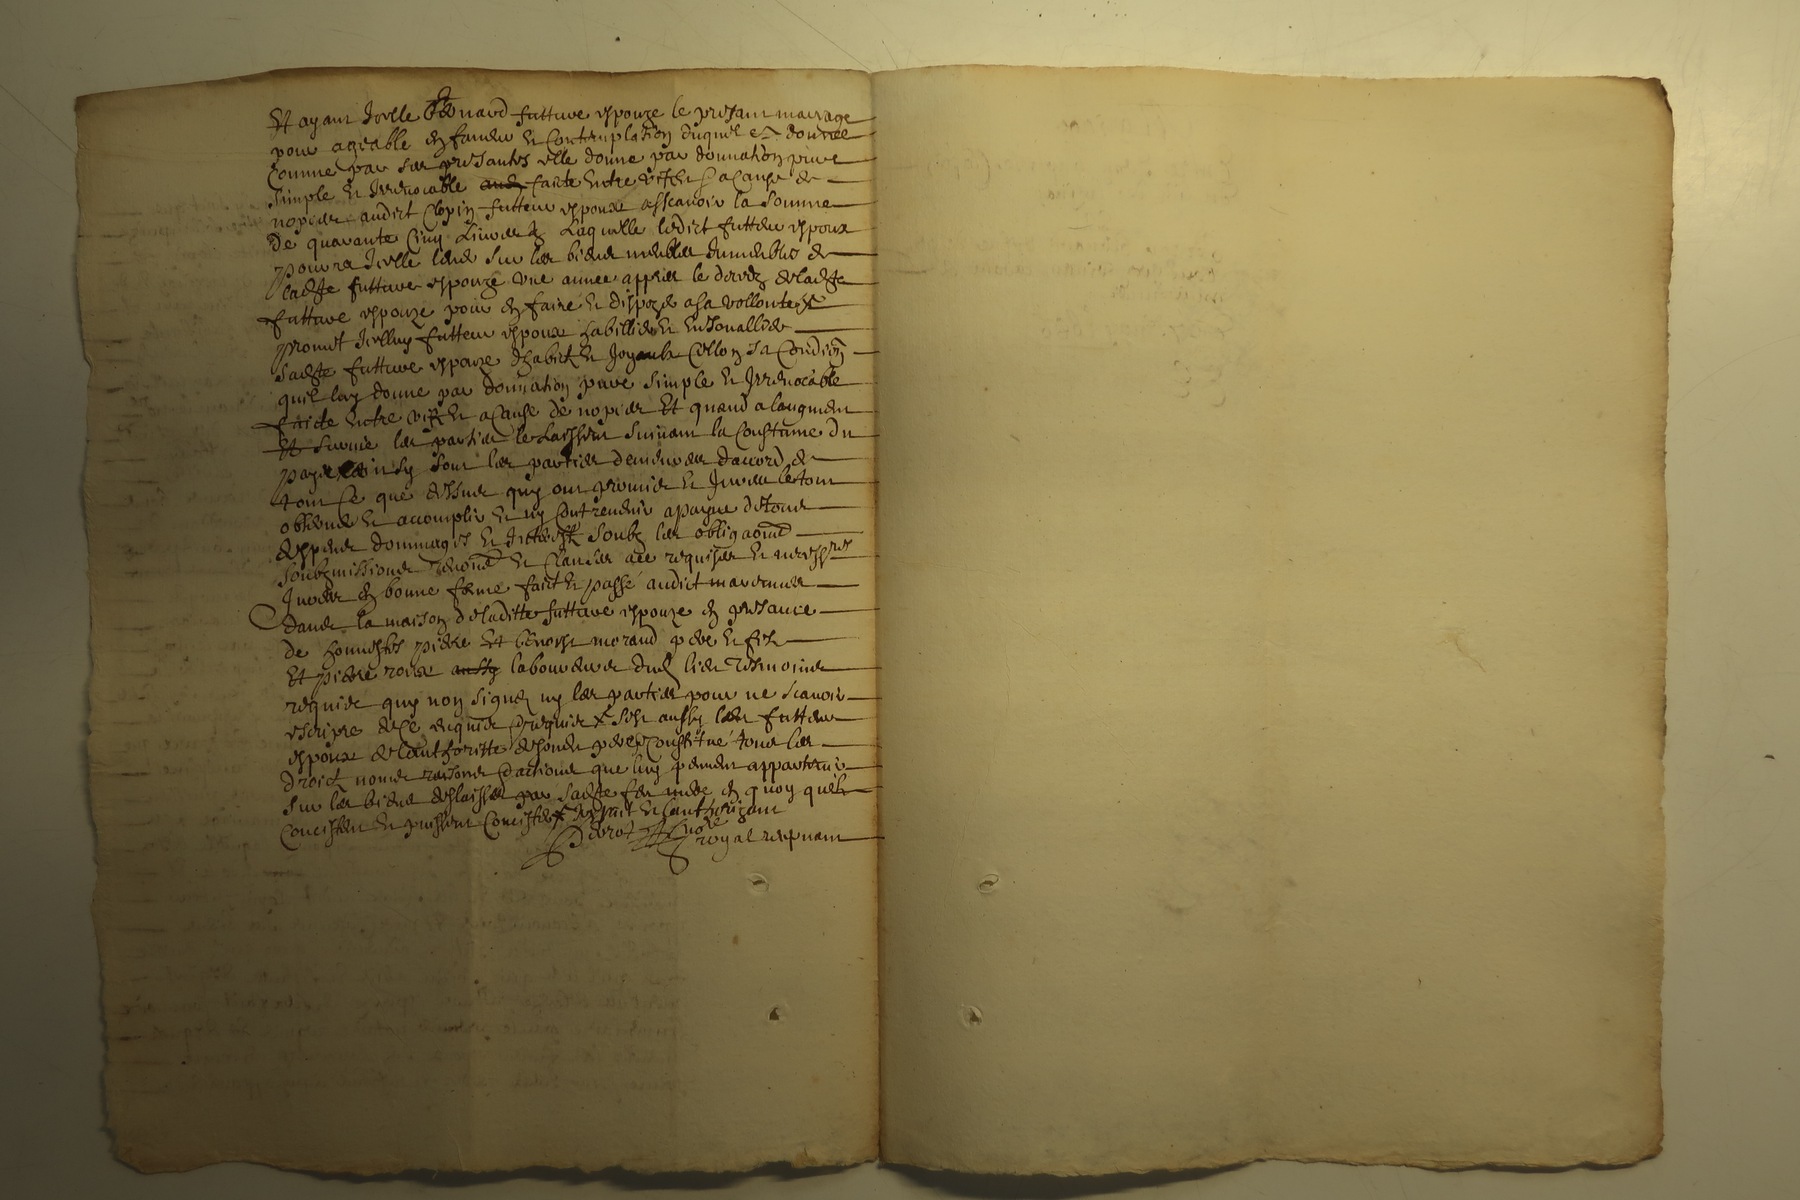 Et ayant Icelle Benard future espouze le present mariage
pour agreable En faveur Et Contemplation duquel a donnee
Comme par ses presantes elle donne par donnation pure
simple Et Irrevocable faicte Entre vifz Et a Cause de
nopces audict Clopin futteur espoux assavoir la somme
De quarante Cinq Livres Laquelle ledict futteur espoux
pourra Icelle sur les biens meubles Immeubles de
ladte future espouze une annee appres le deces deladte
future espouze pour En faire Et dispozer a sa vollonte Et
promet Icelluy futteur espoux habillier Et Enjoualler
sadte future espouze dhabictz Et Joyaulx Cellon sa Condition
quil luy donne par donnation pure simple Et Irrevocable
faicte Entre vifz Et a Cause de nopces Et quand a laugment
Et survie les parties le Laissent suivant la Coustume du
pays Et ainsy sont les parties demeures daccord de
tout Ce que dessus quy ont promis Et Jure le tout
observer Et accomplir Et ny Contrevenir a payne de tous
despens dommages Et Interestz soubz les obligaons
soubzmissions renons Et Clauses requises Et necessres
En bonne forme faict Et passé audict
dans la maison de laditte future espouze En presance
de honnestes pierre Et benoist morand pere Et filz
Et pierre laboureurs dud lieu tesmoings
requis quy nont signez ny les parties pour ne scavoir
escripre de Ce enquis Et requis sest aussy led futteur
espoux de lauthoritte de sondit pere Constitué tous les
Droictz noms raisons Et actions que luy peuvent appartenir
sur les biens delaisses par sadte feu mere En quoy quilz
Concistent Et puissent Concister Et lauthorizant
royal